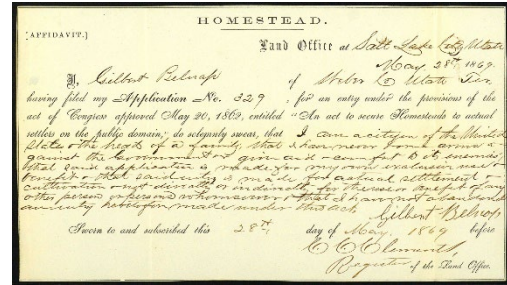 HOMESTEAD.
[AFFIDAVIT.]
Land Office at Salt Lake City Utah
May 28th, 1869.
I, Gilbert Belnap of Weber Co Utah Ter
having filed my Application No. 329, for an entry under the provisions of the
act of Congress approved May 20, 1862, entitled "An act to secure Homesteads to actual
settlers on the public domain," do solemnly swear, that I am a citizen of the United
States & the head of a family, that I have never borne arms a-
gainst the Government or given aid & comfort to its enemies,
that said application is made for my own exclusive use &
benefit & that said entry is made for actual settlement &
cultivation & not directly or indirectly for the use or benefit of any
other person or persons whomsoever & that I have not abandoned
an entry heretofore made under this act.
Gilbert Belnap
Sworn to and subscribed this 28th day of May, 1869 before
C C Clements,
Register of the Land Office.